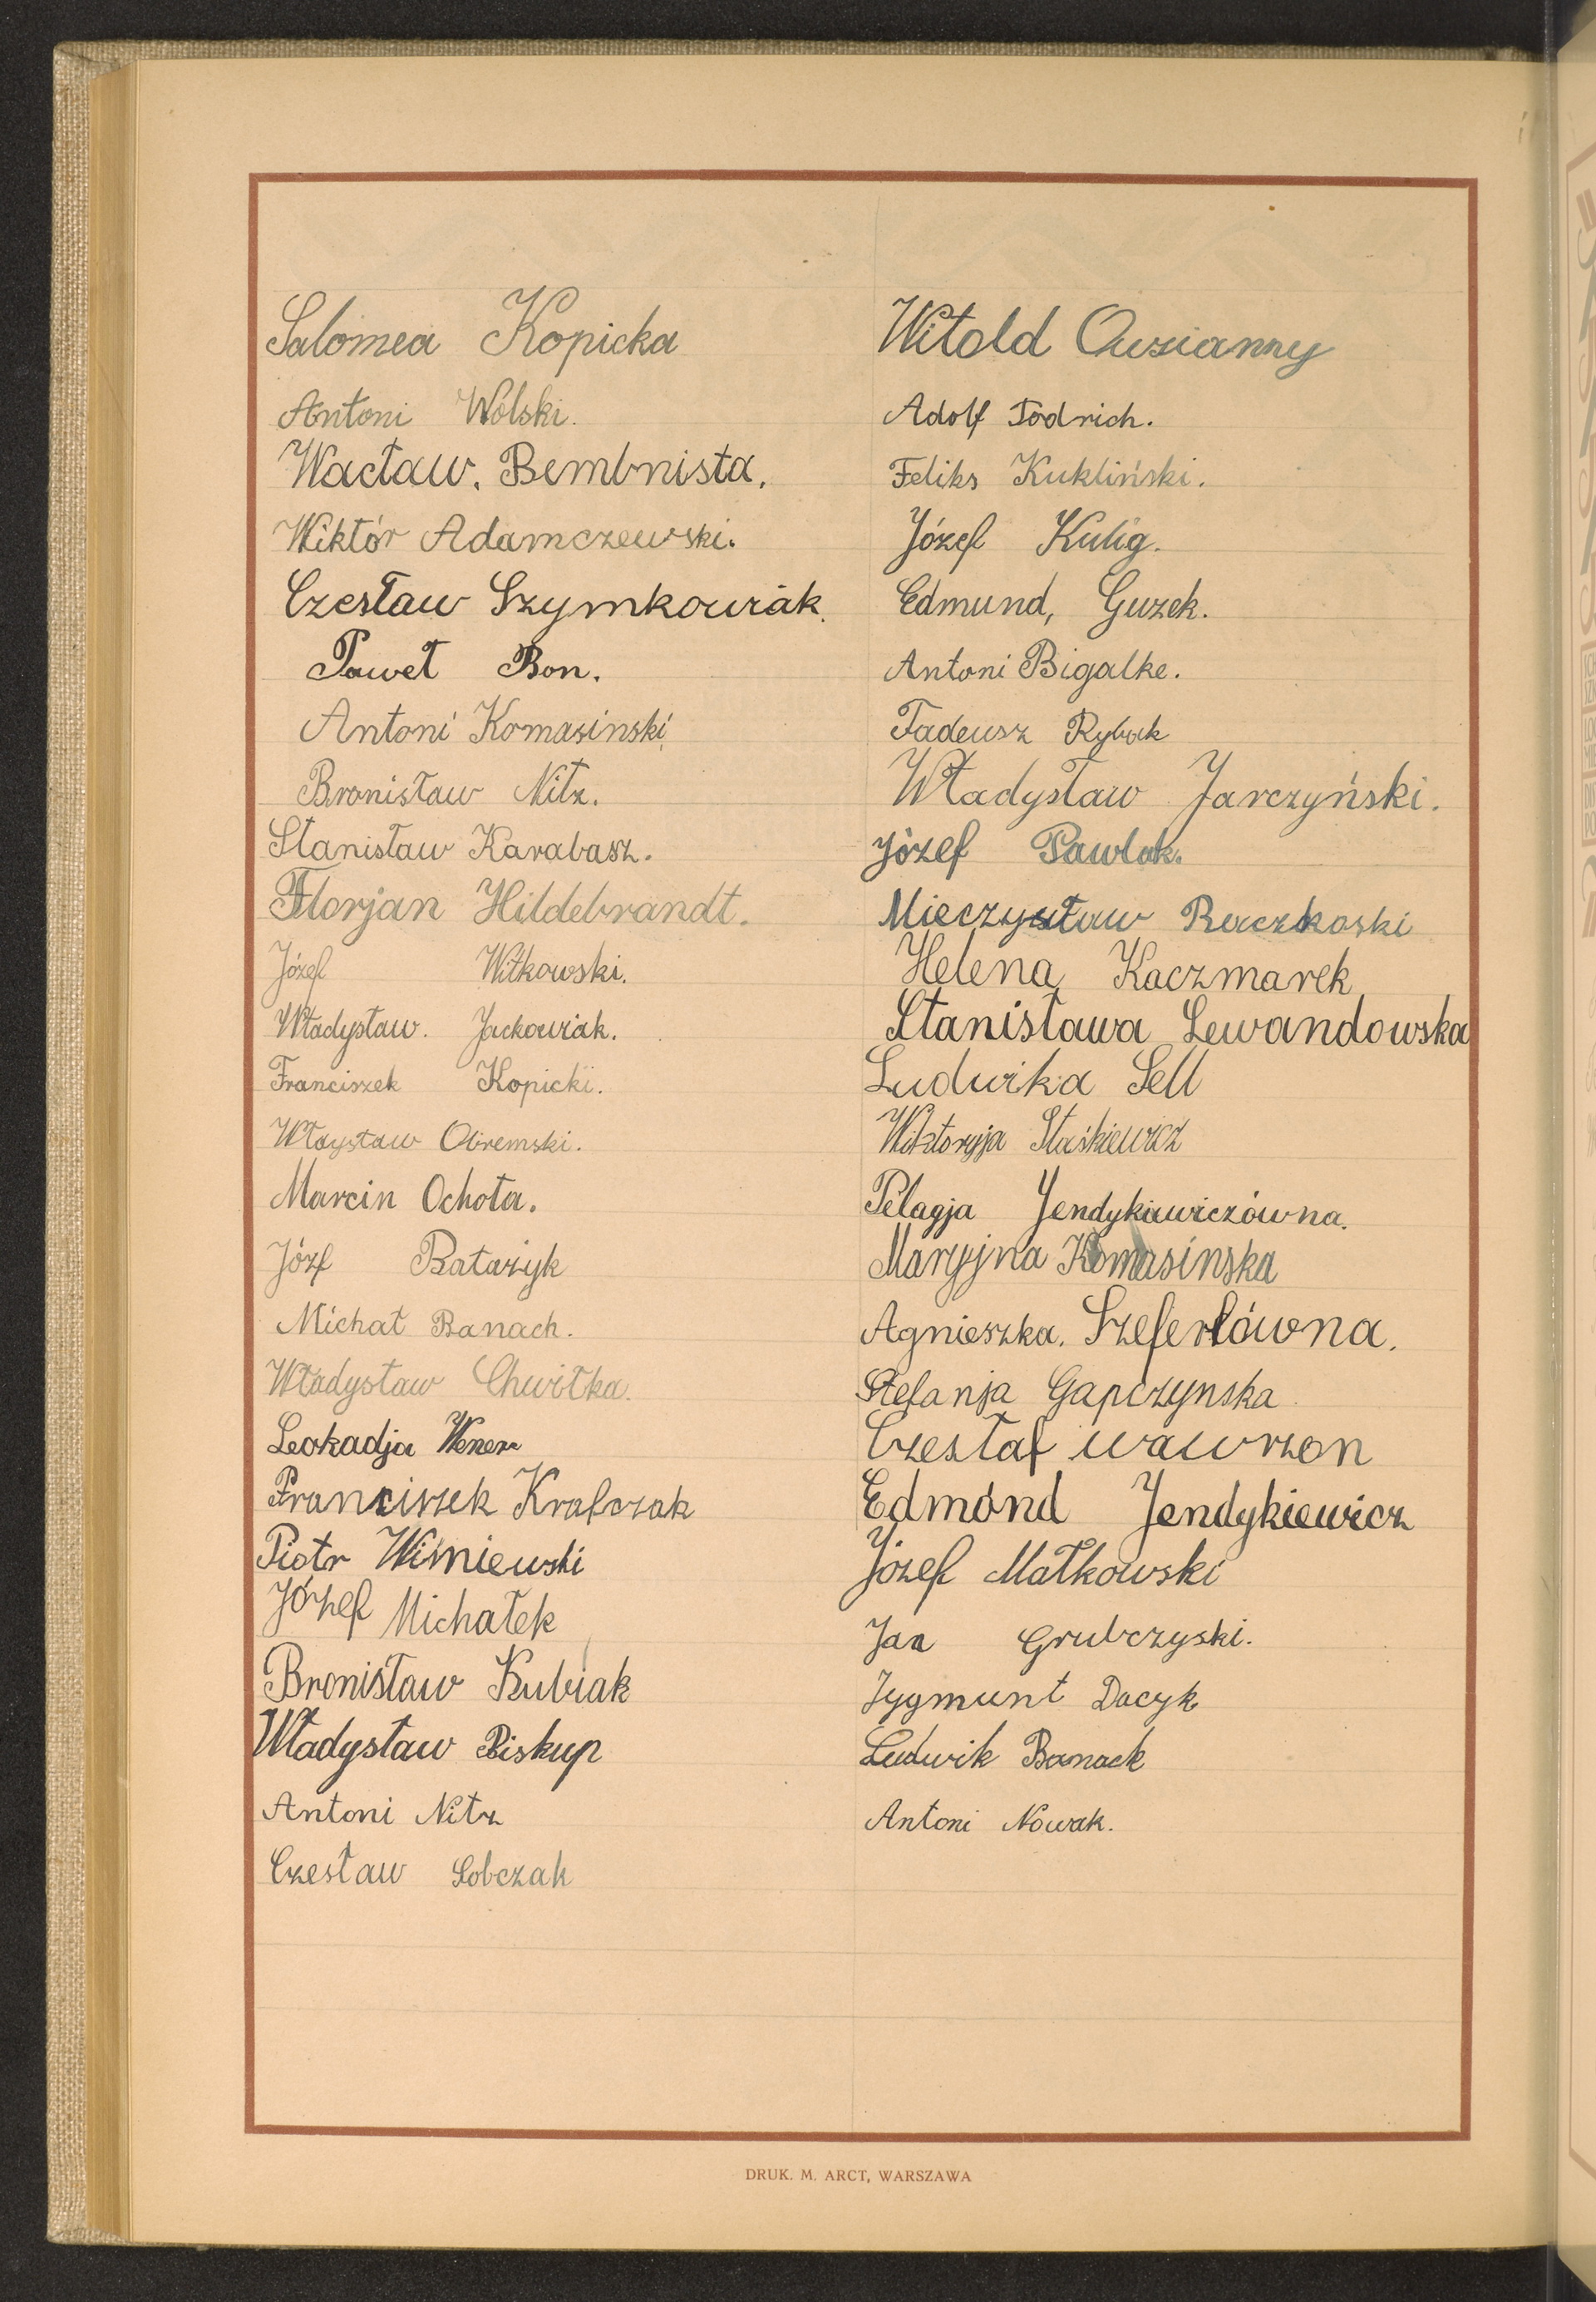 Salomea Kopicka
Antoni Wolski.
Wacław. Bembnista.
Wiktór Adamczewski.
Czesław Szymkowiak.
Paweł Bon.
Antoni Komasinski.
Bronisław Nitz.
Stanisław Karabasz.
Florjan Hildebrandt.
Józef Witkowski.
Władysław. Jackowiak.
Franciszek Kopicki.
Właysław Obremski.
Marcin Ochota.
Józf Ratajzyk
Michał Banach.
Władysław Chwiłka.
Leokadja
Franciszek Krafczak
Piotr Wiśniewski
Józef Michałek
Bronisław Kubiak
Władysław Biskup
Antoni Nitz
Czesław Sobczak
Witold Owsianny
Adolf Jodrich.
Feliks Kukliński.
Józef Kulig.
Edmund, Guzek.
Antoni Bigalke.
Tadeusz Rybak
Władysław Jarczyński.
Józef Pawlak.
Mieczysław Raczkoski
Helena Kaczmarek
Stanisława Lewandowska
Ludwika Sell
Wiktoryja Staśkiewicz
Pelagja Jendykiewiczówna.
Maryjna Komasinska
Agnieszka. Szeferłówna.
Stefanja Gapczynska
Czesłaf wawrzon
Edmónd Jendykiewicz
Józef Małkowski
Jan Grubczyski.
Zygmunt Dacyk
Ludwik Banack
Antoni Nowak.
DRUK. M. ARCT, WARSZAWA